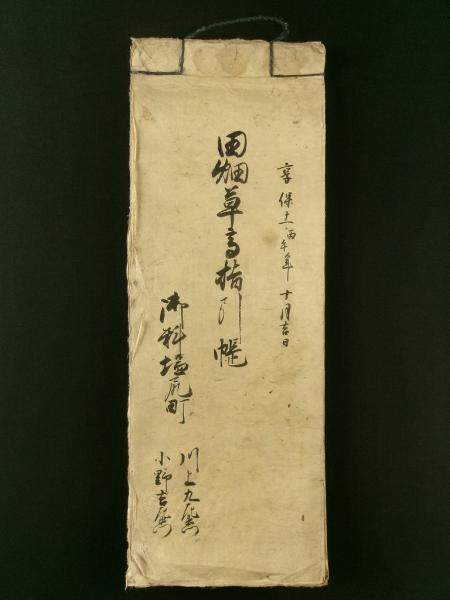 享保十一丙午年 十月吉日
田畑草高指引帳
御料塩尻町
川上九
小野吉